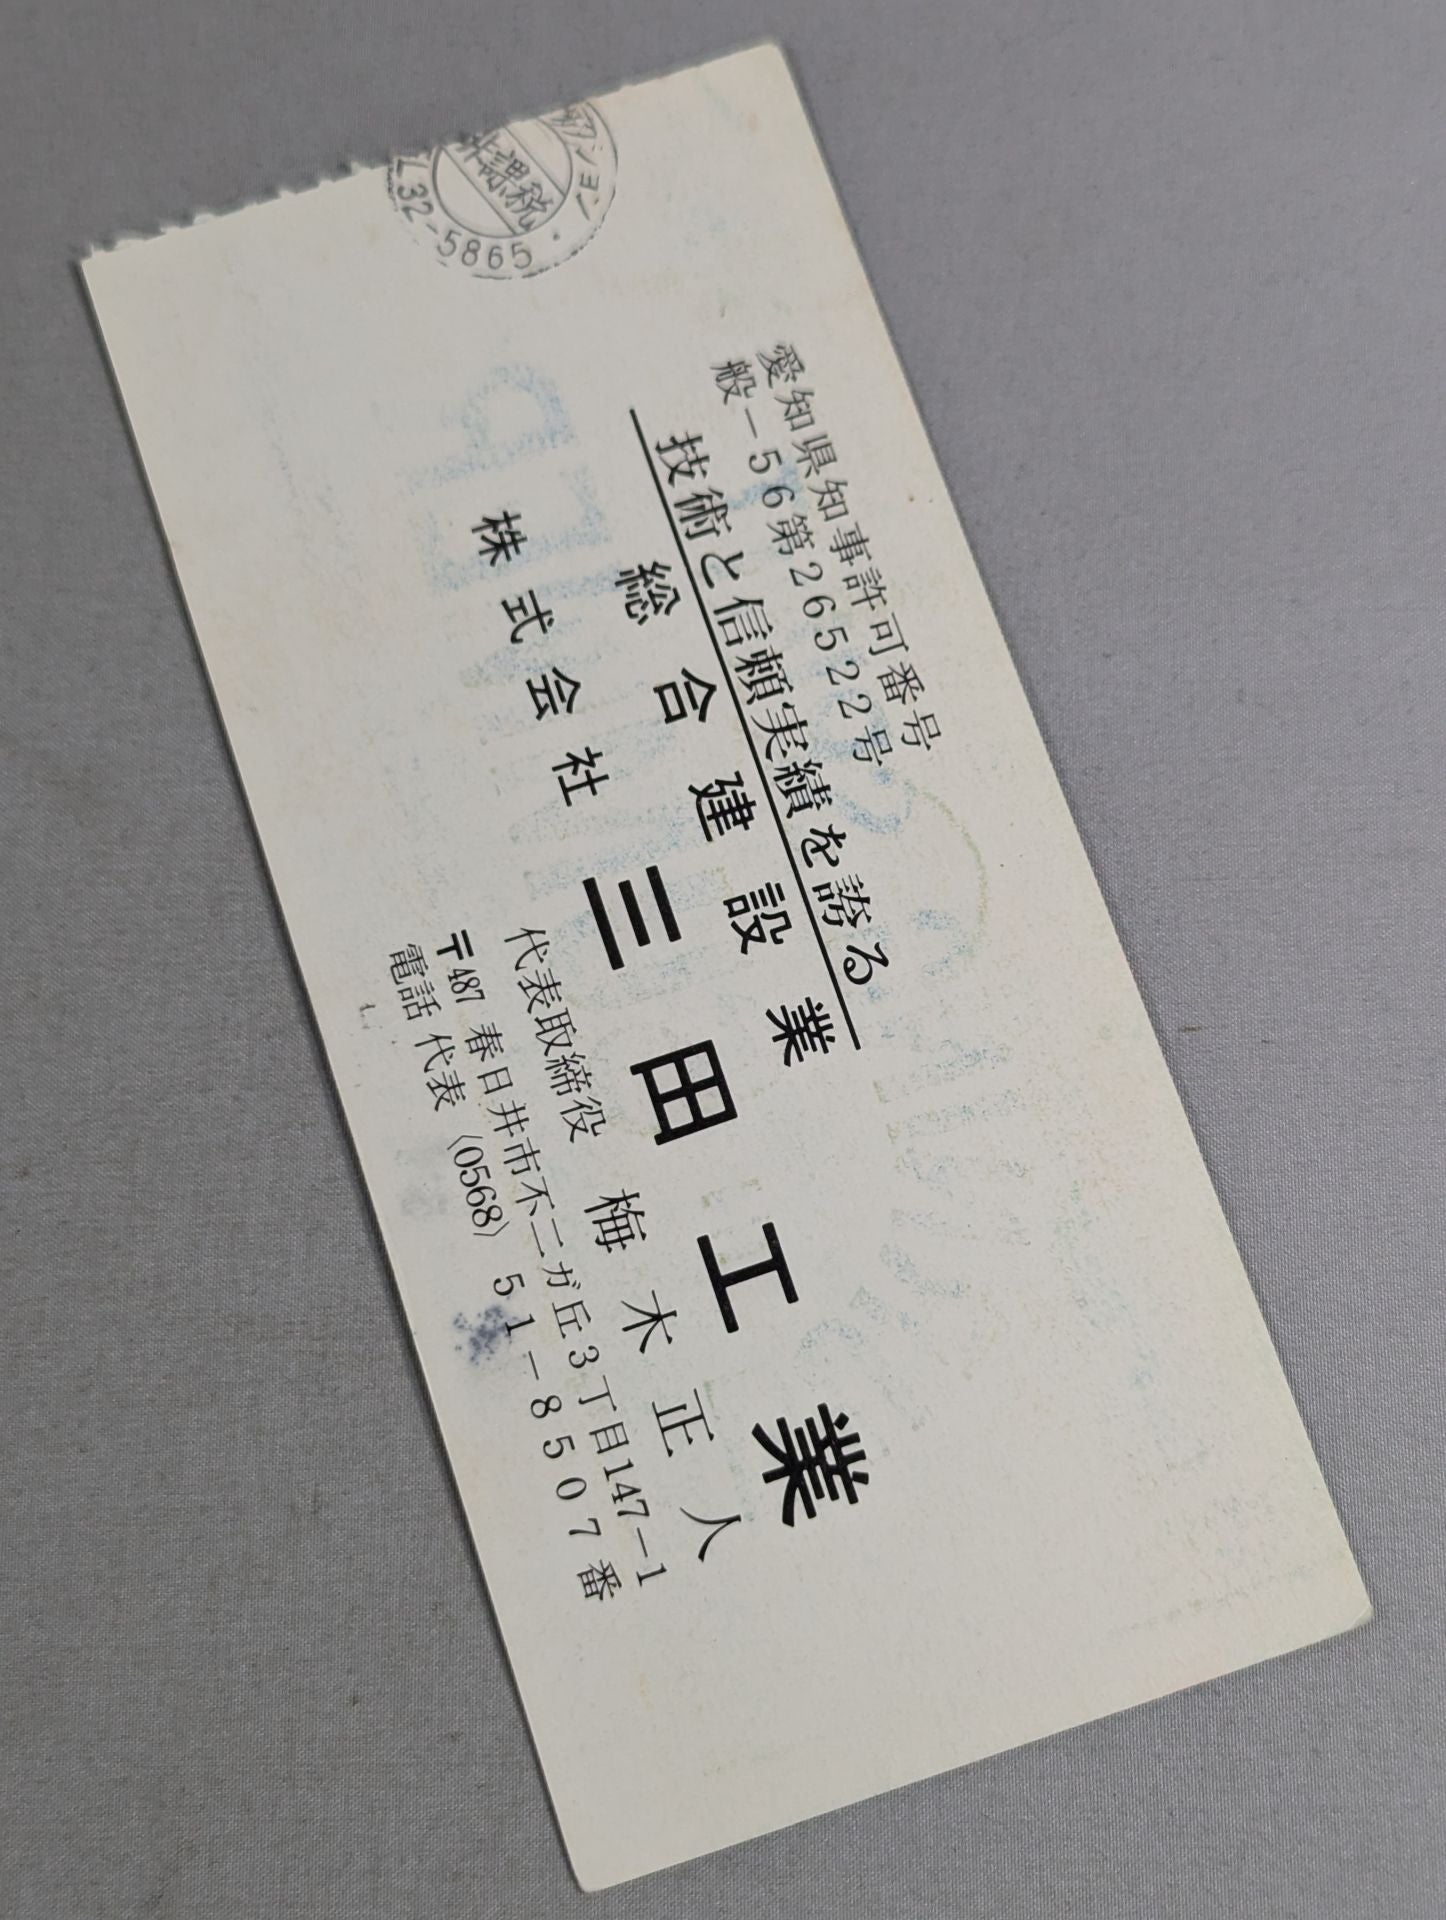 非課税
32-5865
愛知県知事許可番号
般-56第26522号
技術と信頼実績を誇る
総合建設業
株式会社 三田工業
代表取締役 梅木正人
〒487 春日井市不二ガ丘3丁目147-1
電話 代表 〈0568〉 51-8507番